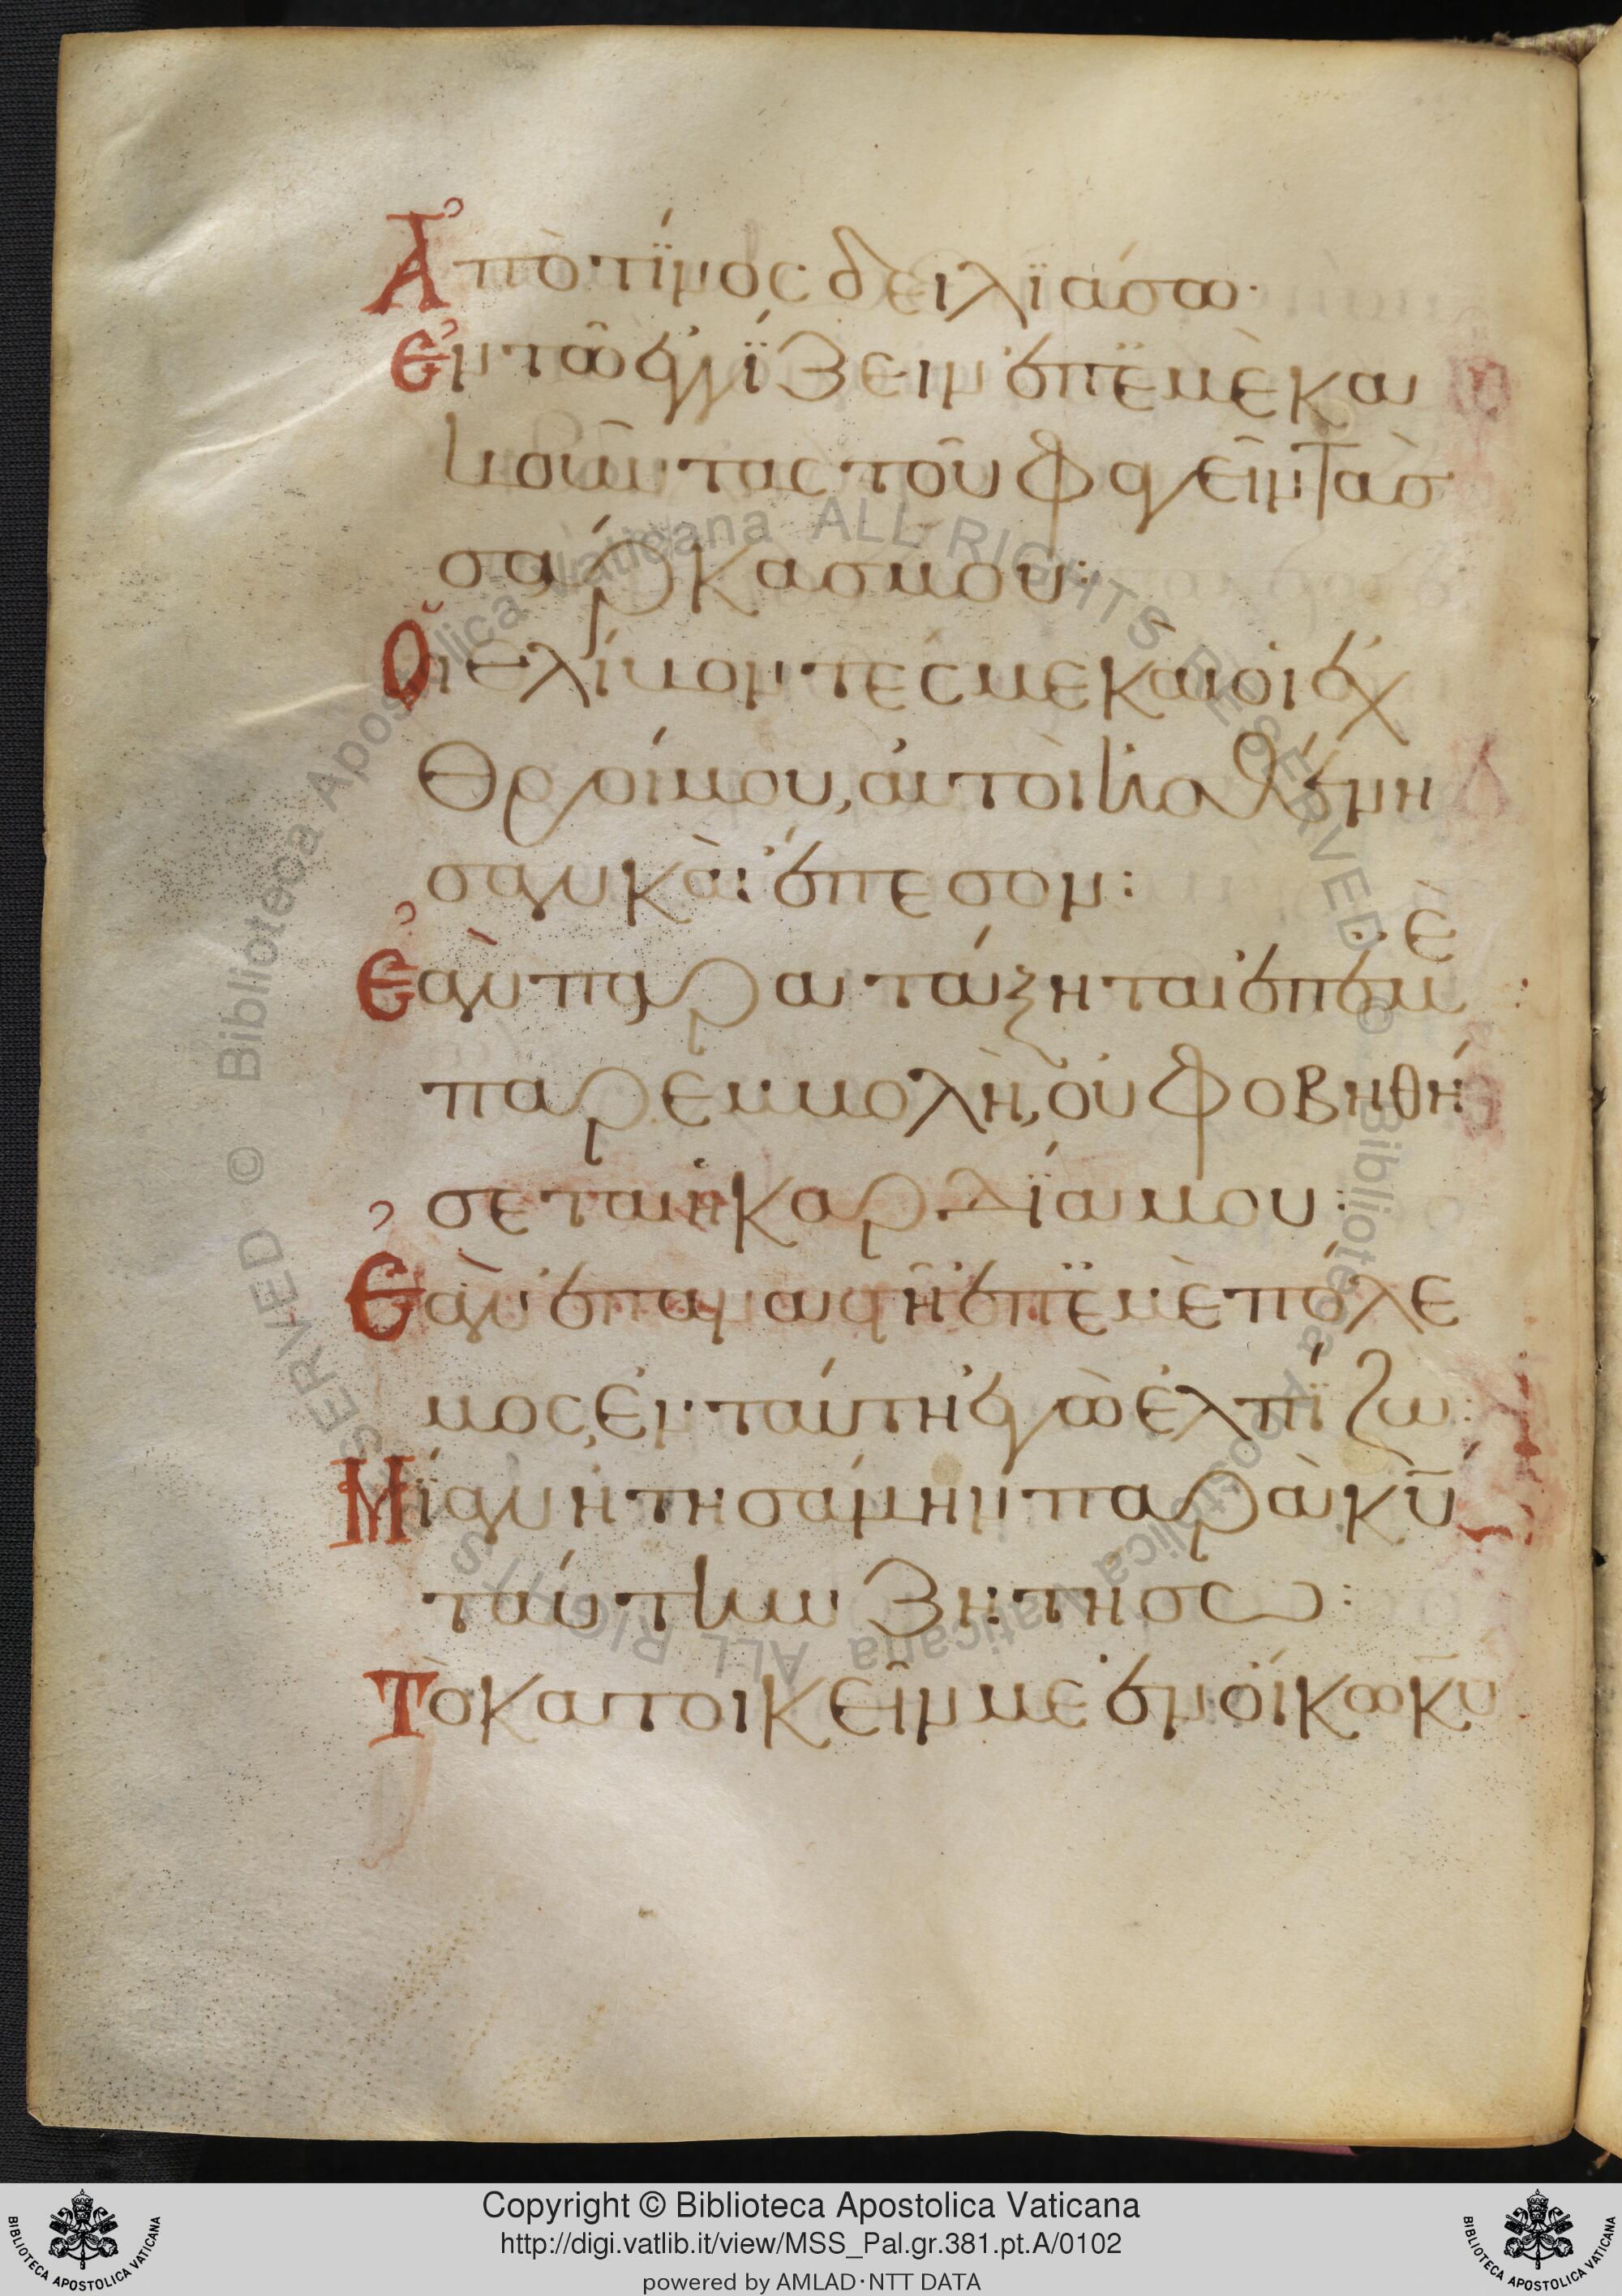 Ἀπὸ τίνος δειλϊάσω·
Ἐν τῶ ἐγγΐζειν ἐπ' ἐμὲ κα
κοῦντας τοῦ φαγεῖν τὰσ
σάρκασ μου:
Οἱ θλίβοντές με καὶ οἱ ἐχ
θροί μου, αὐτοὶ ἠσθένη
σαν κὰι ἔπεσον:
Ἐὰν παρατάξηται ἐπ' ἐμὲ
παρεμβολὴ, οὐ φοβηθή
σεται ἡ καρδΐα μου:
Ἐὰν ἐπαναστῆ ἐπ' ἐμὲ πόλε
μος, ἐν ταύτη ἐγὼ ἐλπΐζω:
Μΐαν ἠτησάμην παρὰ κ̅υ̅
ταύτην ζητήσω:
Τὸ κατοικεῖν με ἐν οἴκω κ̅υ̅
© Biblioteca Apostolica Vaticana ALL RIGHTS RESERVED © Biblioteca Apostolica Vaticana ALL RIGHTS RESERVED
Copyright © Biblioteca Apostolica Vaticana
http://digi.vatlib.it/view/MSS_Pal.gr.381.pt.A/0102
powered by AMLAD·NTT DATA
BIBLIOTECA APOSTOLICA VATICANA
BIBLIOTECA APOSTOLICA VATICANA